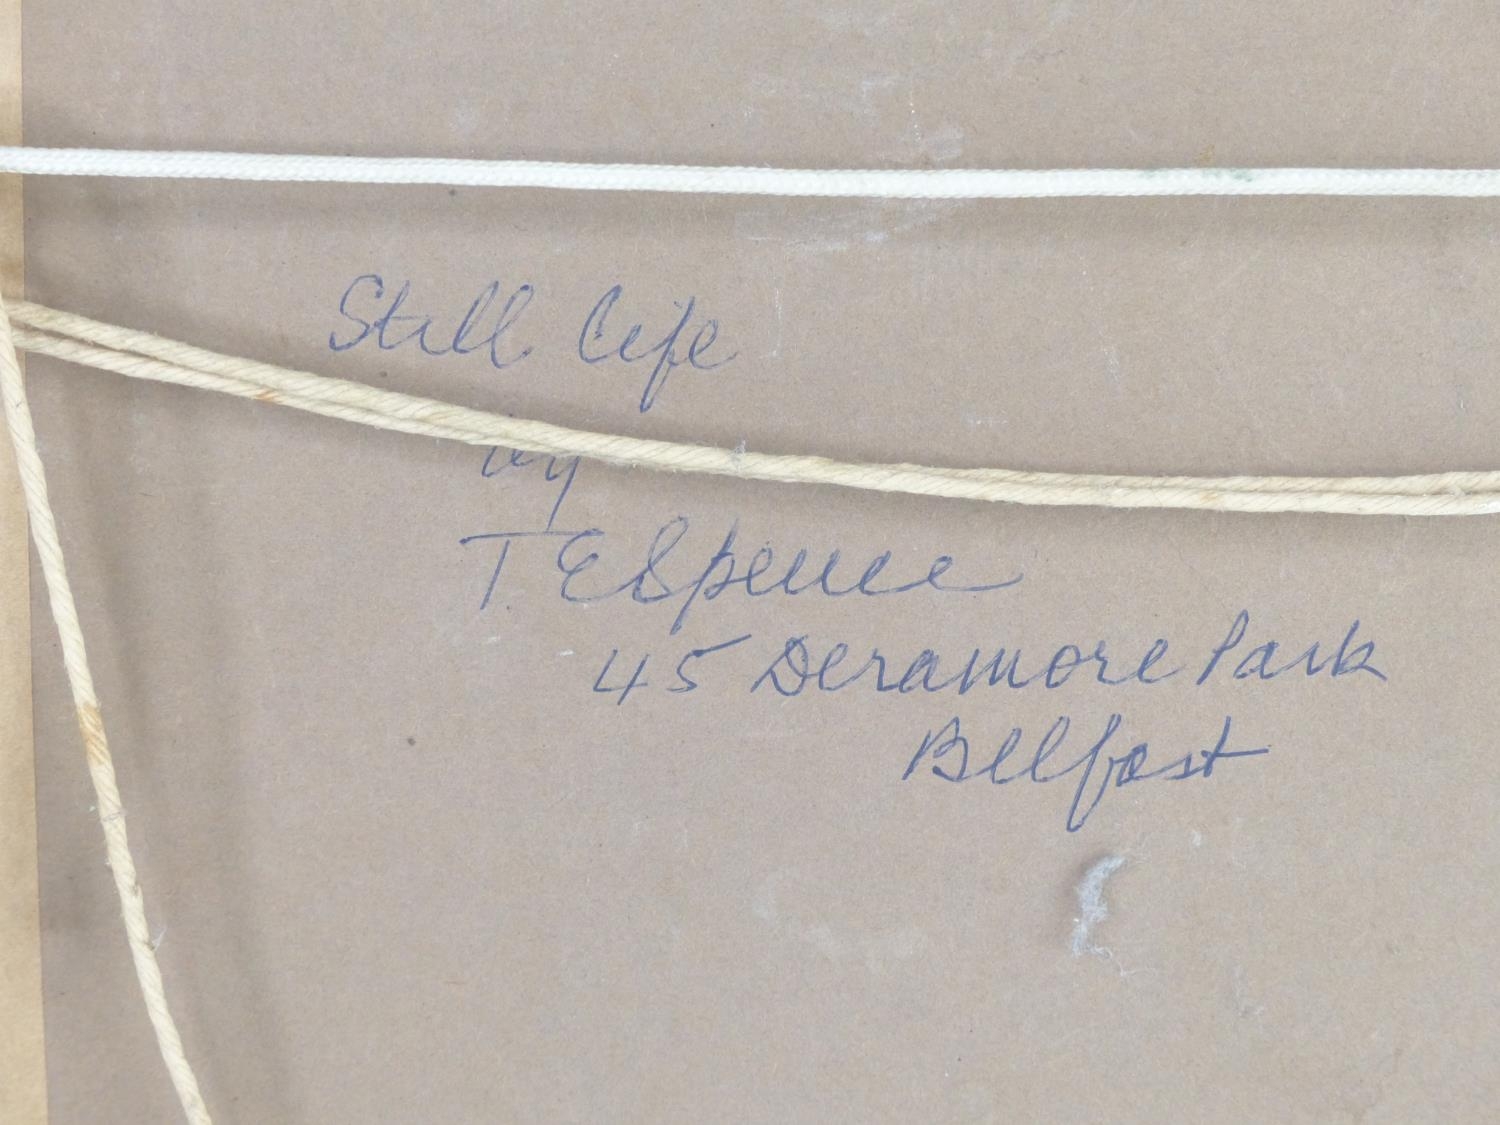 Still Life
by
T E Spence
45 Deramore Park
Belfast